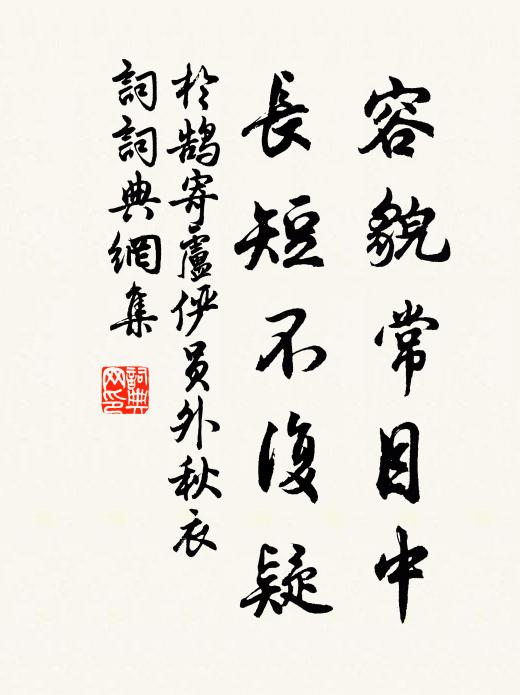 容貌常目中
長短不復疑
於鵠寄盧俨员外秋衣
詞詞典網集
詞典网印